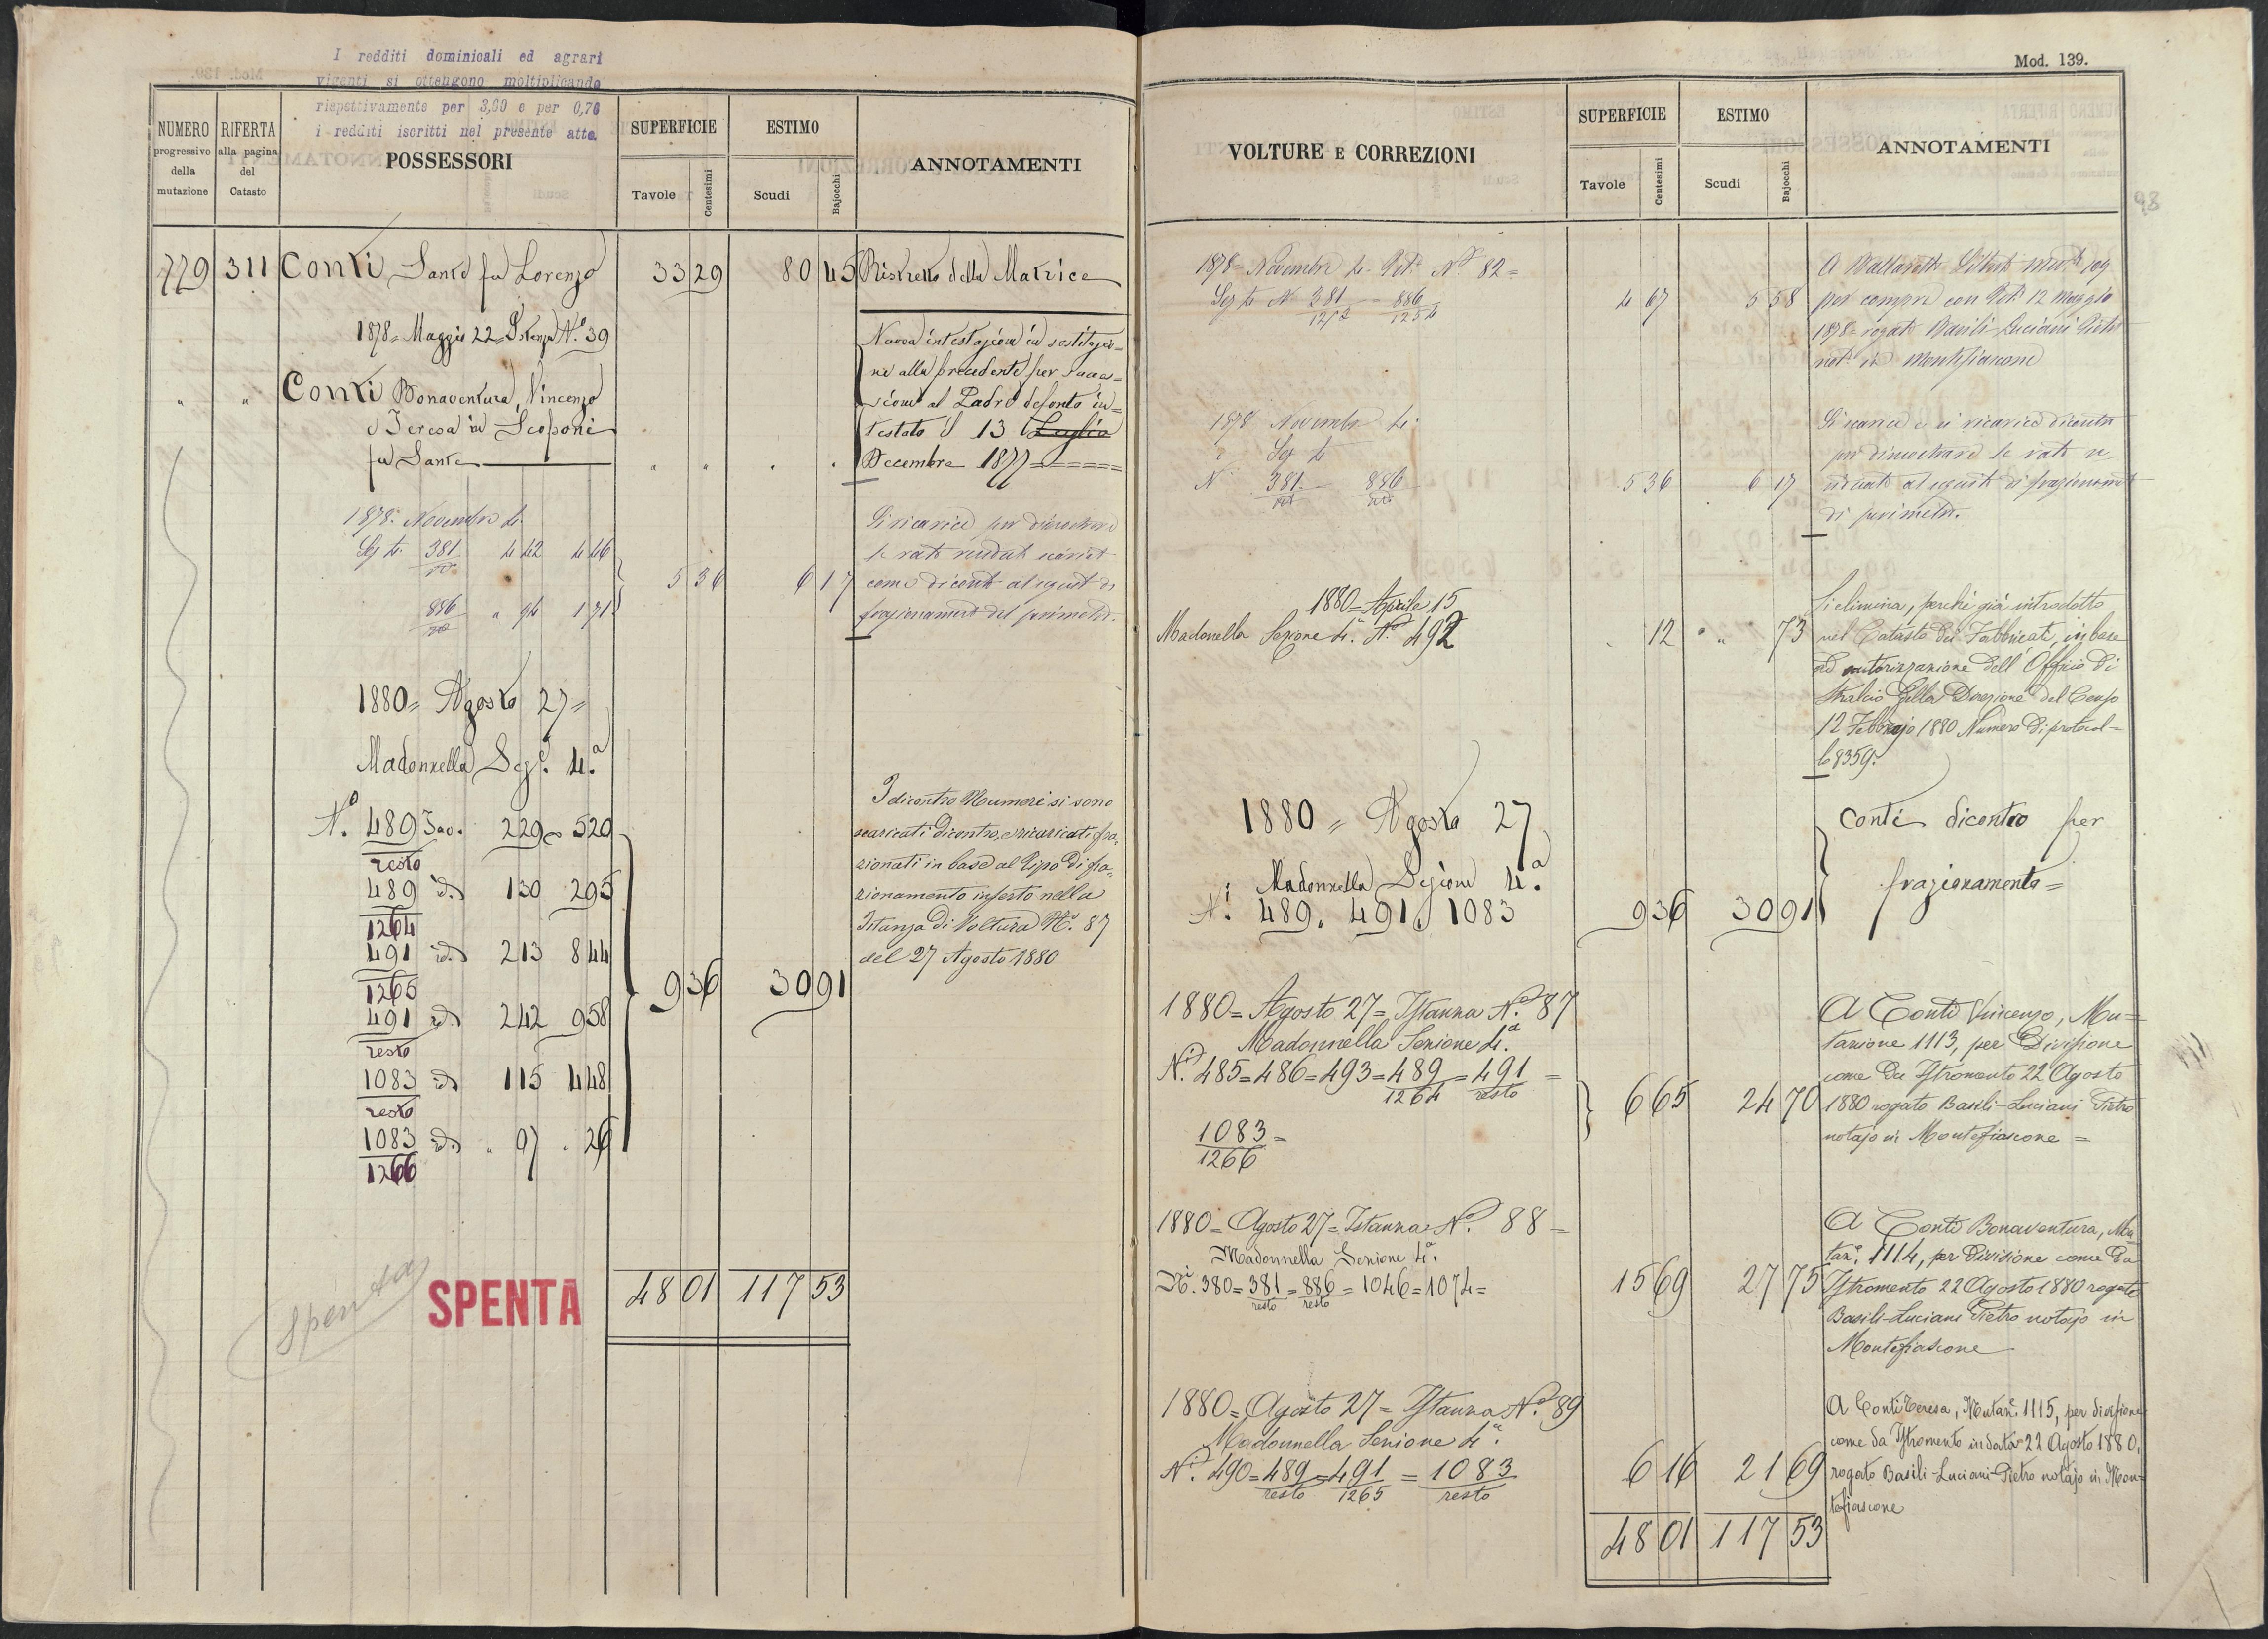 I redditi dominicali ed agrari
vigenti si ottengono moltiplicando
rispettivamente per 3,60 e per 0,70
i redditi iscritti nel presente atto.
NUMERO
progressivo
della
mutazione
RIFERTA
alla pagina
del
Catasto
POSSESSORI
SUPERFICIE
Tavole
Centesimi
ESTIMO
Scudi
Bajocchi
ANNOTAMENTI
779 311 Conti Sante fu Lorenzo 33 29 80 45 Ristretto della Matrice
1878 = Maggio 22 = Istanza N.º 39
" " Conti Bonaventura, Vincenzo
e Teresa in Scoponi
fu Sante " " . .
Nuova intestazione in sostituzio=
ne alla precedente per succes=
sione al Padre defonto in=
testato il 13 Luglio
Decembre 1877 =====
1878. Novembre 4.
Sez 4. 381 4 42 4 46
886 " 94 1 71
5 36 6 17
Si ricarica per dimostrare
le rate
come dicontro al seguito di
frazionamento del perimetro.
1880 = Agosto 27 =
Madonnella Sez.e 4.a
N.º 489 Tav. 2 29 = 5 20
resto
489 id. 1 30 2 95
1264
491 id. 2 13 8 44
1265
491 id. 2 42 9 58
resto
1083 id. 1 15 4 48
resto
1083 id. " 07 . 26
1266
9 36 30 91
I dicontro Numeri si sono
scaricati dicontro, e ricaricati fra=
zionati in base al Tipo di fra=
zionamento inserto nella
Istanza di Voltura N.º 87
del 27 Agosto 1880
spenta
SPENTA
48 01 117 53
Mod. 139.
98
VOLTURE E CORREZIONI
SUPERFICIE
Tavole
Centesimi
ESTIMO
Scudi
Bajocchi
ANNOTAMENTI
1878 = Novembre 4 = N.º 82 =
Sez 4 N. 381 886
1254
4 67 5 58
A
per compra con 12 Maggio
1878 = rogato Basili-Luciani Pietro
not. in Montefiascone
1878 Novembre 4.
Sez 4
N. 381 886
5 36 6 17
Si scarica e si ricarica dicontro
per dimostrare le rate
al seguito di frazionamento
di perimetro.
1880 = Aprile 15
Madonnella Sezione 4.a N.º 492
. 12 " 73
Si elimina, perchè già introdotto
nel Catasto dei Fabbricati, in base
ad autorizzazione dell' Officio di
Stralcio della Direzione del Censo
12 Febbrajo 1880 Numero di protocol=
lo 8359.
1880 = Agosto 27
Madonnella Sezione 4.a
N.i 489. 491. 1083
9 36 30 91
Conti dicontro per
frazionamento =
1880 = Agosto 27 = Istanza N.º 87
Madonnella Sezione 4.a
N.i 485 = 486 = 493 = 489 = 491 =
1264 resto
1083 =
1266
6 65 24 70
A Conti Vincenzo, Mu=
tazione 1113, per Divisione
come da Istromento 22 Agosto
1880 rogato Basili-Luciani Pietro
notajo in Montefiascone =
1880 = Agosto 27 = Istanza N.º 88 =
Madonnella Sezione 4.a
N.i 380 = 381 = 886 = 1046 = 1074 =
resto resto
15 69 27 75
A Conti Bonaventura, Mu=
taz.e 1114, per Divisione come da
Istromento 22 Agosto 1880 rogato
Basili-Luciani Pietro notajo in
Montefiascone
1880 = Agosto 27 = Istanza N.º 89
Madonnella Sezione 4.a
N.i 490 = 489 = 491 = 1083
resto 1265 resto
6 16 21 69
A Conti Teresa, Mutaz.e 1115, per divisione
come da Istromento in data 22 Agosto 1880,
rogato Basili-Luciani Pietro notajo in Mon=
tefiascone
48 01 117 53